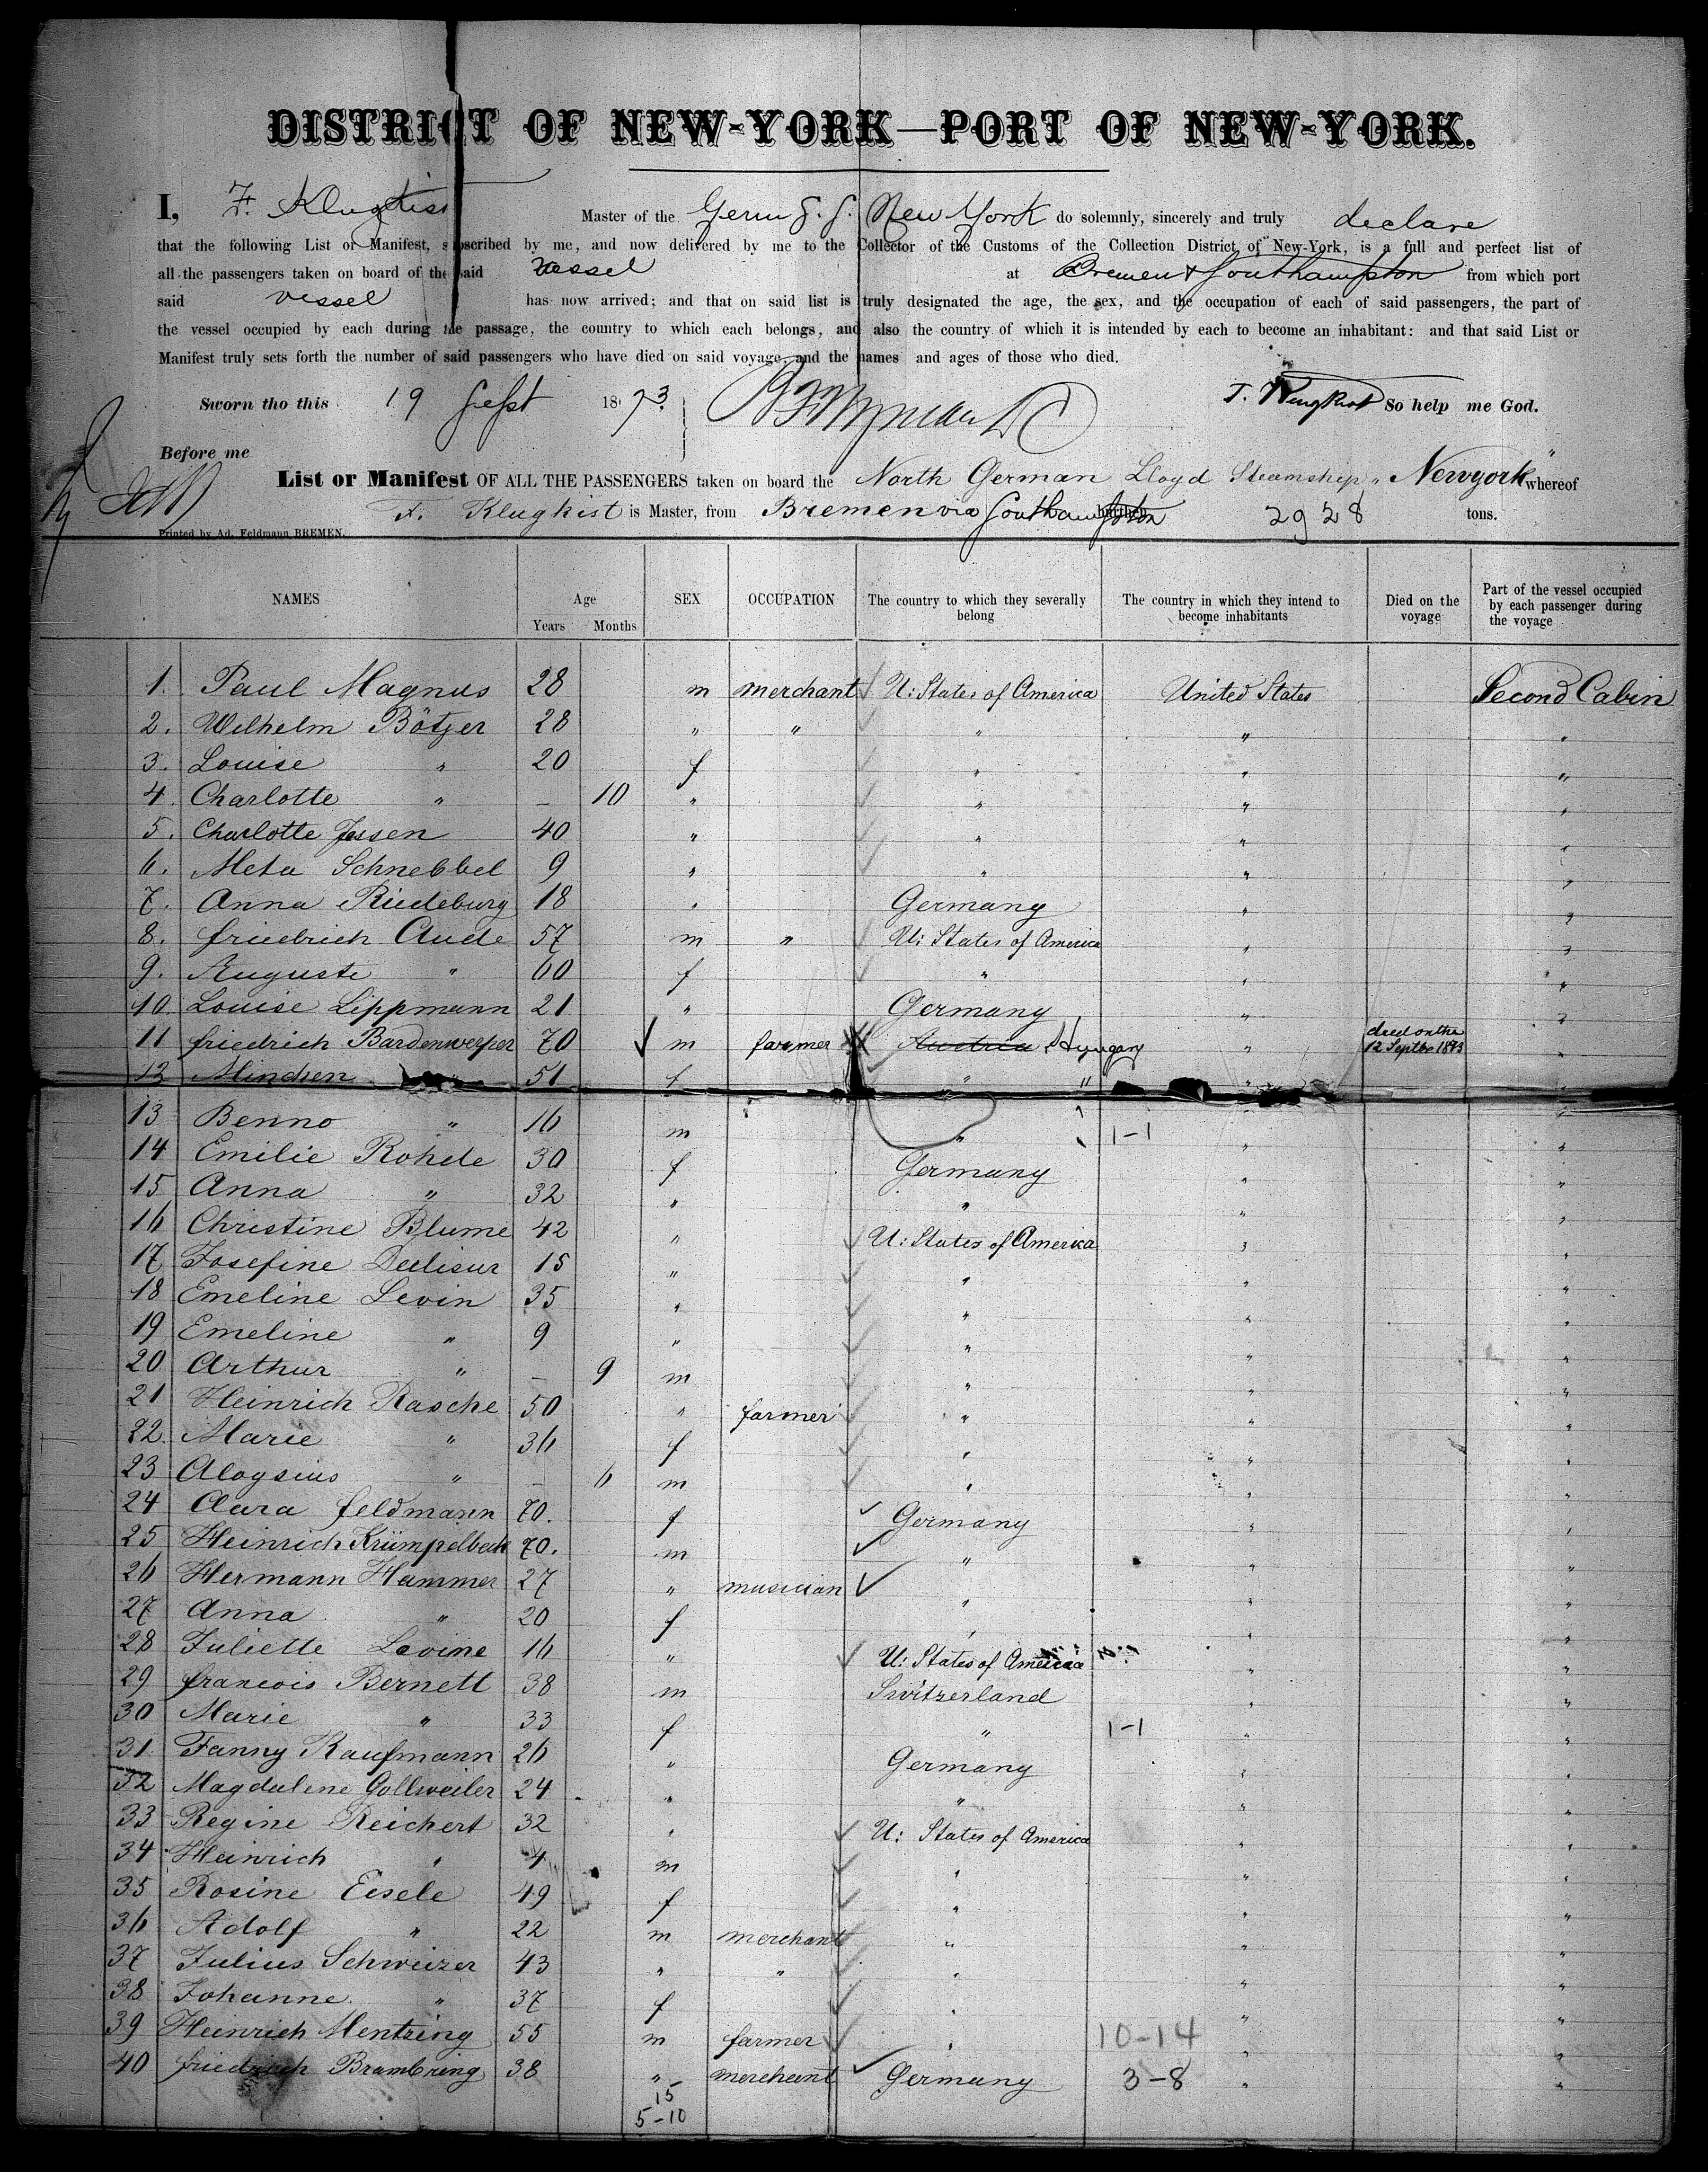 DISTRICT OF NEW-YORK—PORT OF NEW-YORK.
I, F. Klugkist Master of the Germ S. S. New York do solemnly, sincerely and truly declare
that the following List or Manifest, subscribed by me, and now delivered by me to the Collector of the Customs of the Collection District of New-York, is a full and perfect list of
all the passengers taken on board of the said vessel at Bremen & Southampton from which port
said vessel has now arrived; and that on said list is truly designated the age, the sex, and the occupation of each of said passengers, the part of
the vessel occupied by each during the passage, the country to which each belongs, and also the country of which it is intended by each to become an inhabitant: and that said List or
Manifest truly sets forth the number of said passengers who have died on said voyage, and the names and ages of those who died.
Sworn tho this 19 Sept 1873. F. Klugkist So help me God.
Before me
List or Manifest OF ALL THE PASSENGERS taken on board the North German Lloyd Steamship "Newyork" whereof
F. Klugkist is Master, from Bremen via Southampton burthen 2928 tons.
Printed by Ad. Feldmann BREMEN.
NAMES Age SEX OCCUPATION The country to which they severally belong The country in which they intend to become inhabitants Died on the voyage Part of the vessel occupied by each passenger during the voyage
Years Months
1. Paul Magnus 28 m merchant U: States of America United States Second Cabin
2. Wilhelm Bötzer 28 " " " " "
3. Louise " 20 f " " "
4. Charlotte " – 10 " " " "
5. Charlotte Jessen 40 " " " "
6. Meta Schnebbel 9 " " " "
7. Anna Riedeburg 18 " Germany " "
8. Friedrich Aude 57 m " U: States of America " "
9. Auguste " 60 f " " "
10. Louise Lippmann 21 " Germany " "
11 Friedrich Bardenwerper 70 m farmer Austria Hungary " died on the 12 Septbr 1873 "
12 Minchen " 51 f " " " "
13 Benno " 16 m " 1-1 " "
14 Emilie Rohde 30 f Germany " "
15 Anna " 32 " " " "
16 Christine Blume 42 " U: States of America " "
17 Josefine 15 " " " "
18 Emeline Levin 35 " " " "
19 Emeline " 9 " " " "
20 Arthur " – 9 m " " "
21 Heinrich Rasche 50 " farmer " " "
22. Marie " 36 f " " "
23 Aloysius " – 6 m " " "
24 Clara Feldmann 70. f Germany " "
25 Heinrich Krümpelbeck 70. m " " "
26 Hermann Hammer 27 " musician " " "
27 Anna " 20 f " " "
28 Juliette Lavine 16 " U: States of America " "
29 Francois Bernett 38 m Switzerland " "
30 Marie " 33 f " 1-1 " "
31 Fanny Kaufmann 26 " Germany " "
32 Magdalene Gollweiler 24 " " " "
33 Regine Reichert 32 " U: States of America " "
34 Heinrich " 4 m " " "
35 Rosine Eisele 49 f " " "
36 Adolf " 22 m merchant " " "
37 Julius Schweizer 43 " " " " "
38 Johanne " 37 f " " "
39 Heinrich Mentzing 55 m farmer " 10-14 " "
40 Friedrich Brambring 38 " merchant Germany 3-8 " "
15
5-10